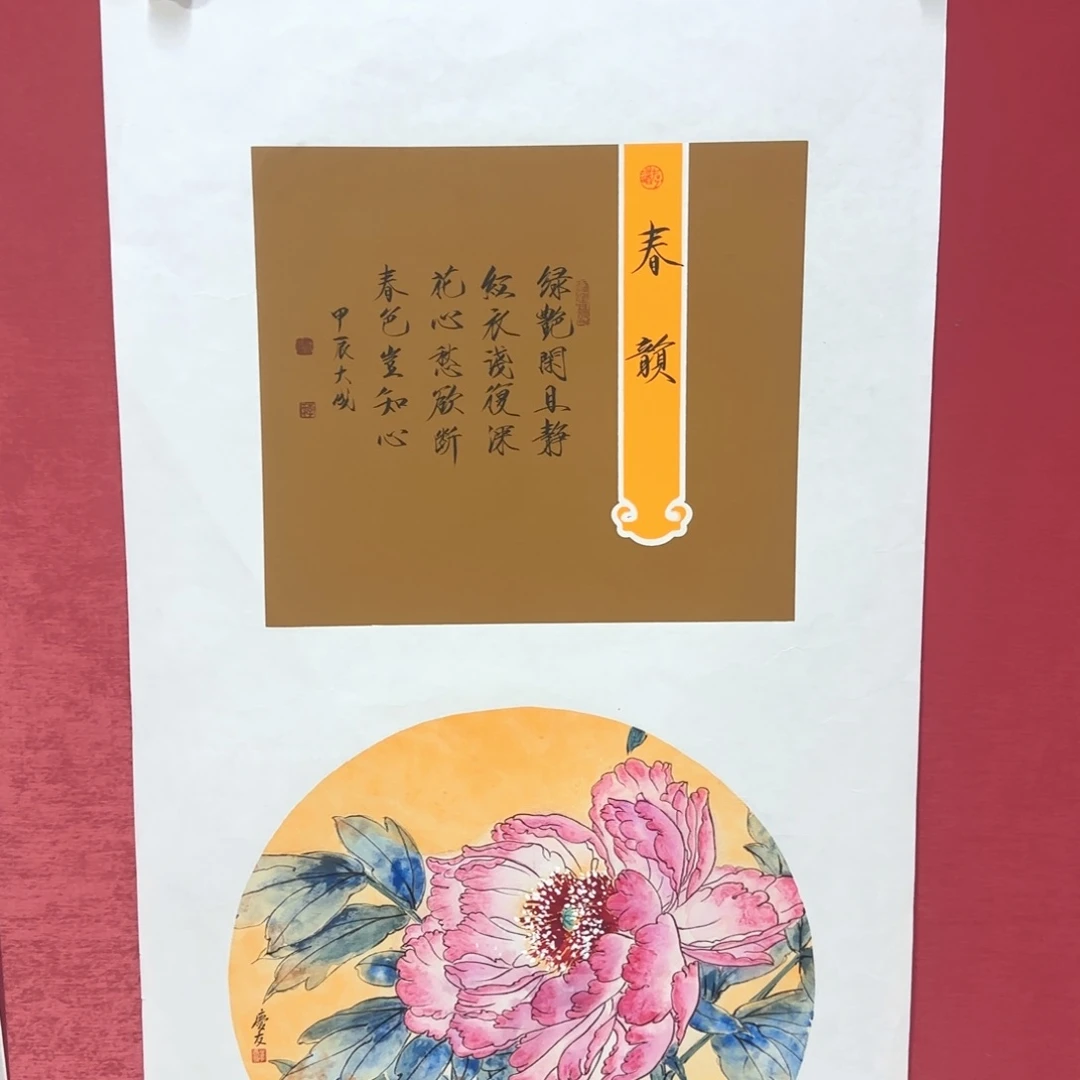 春韻
绿艷閑且静
紅衣淺復深
花心愁欲断
春色豈知心
甲辰大成
慶友